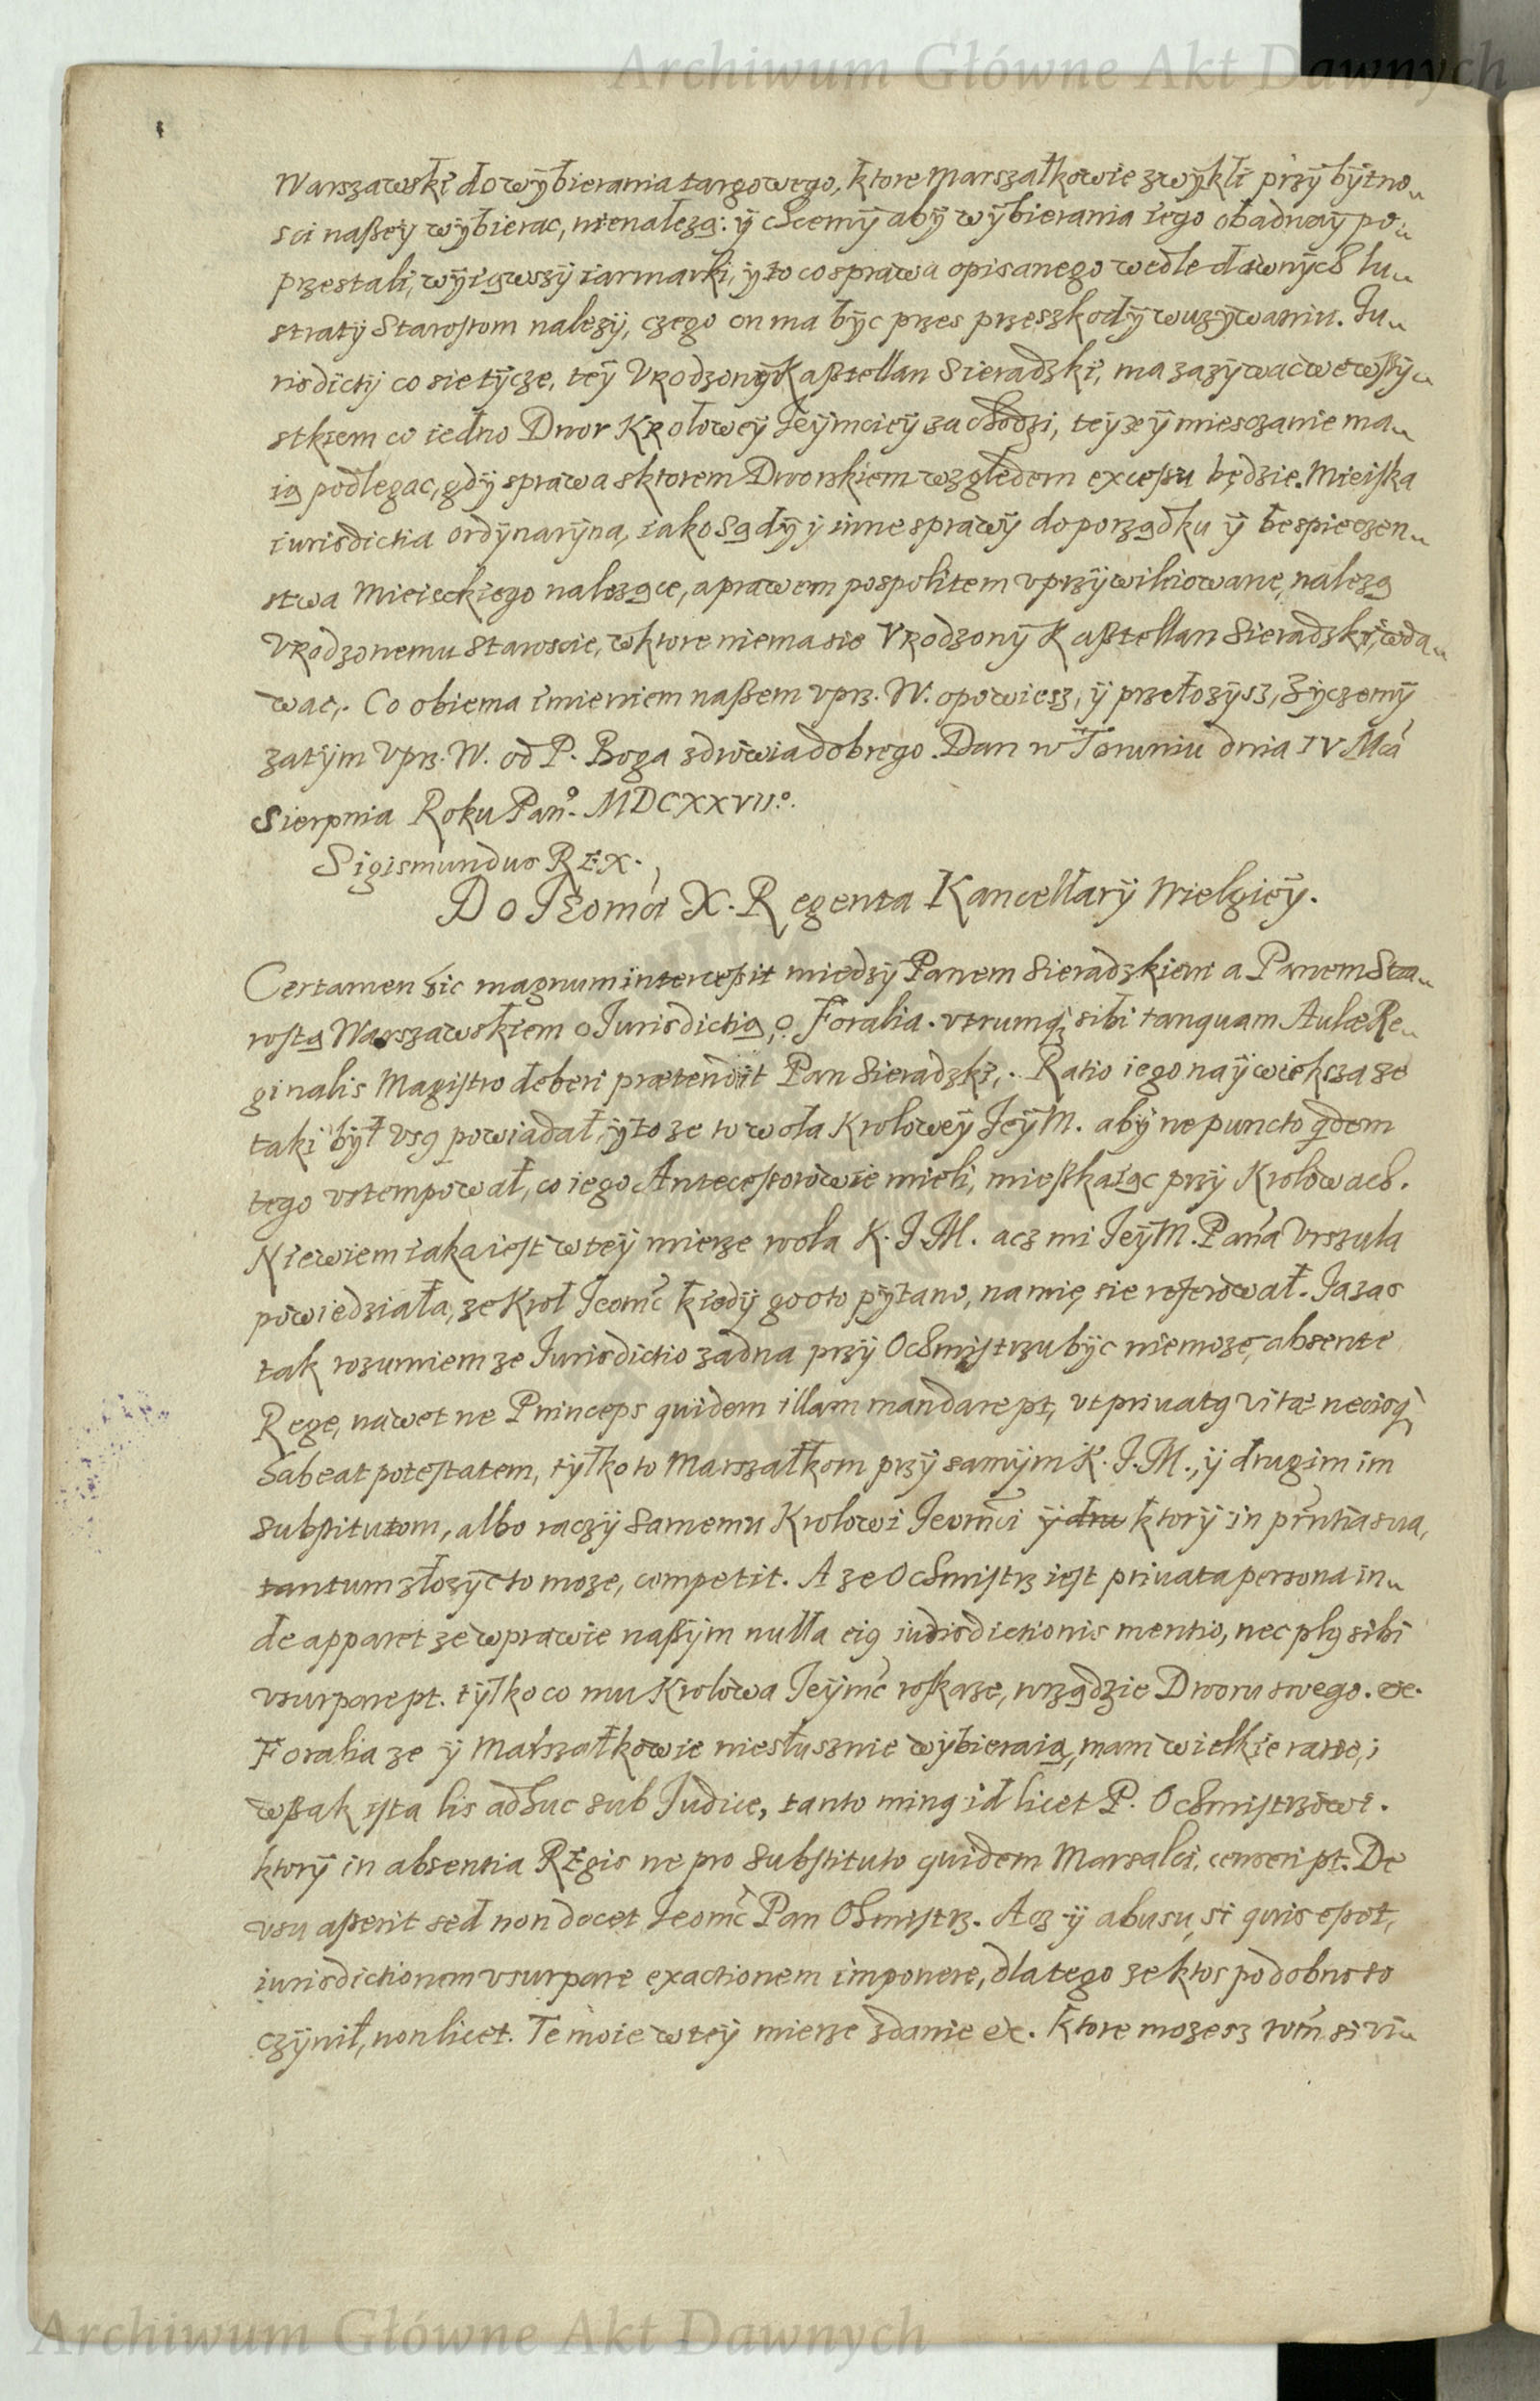 Archiwum Główne Akt Dawnych
Warszawski do wÿbierania targowego, ktore Marszałkowie zwÿkli przÿ bÿtno„
sci naßeÿ wÿbierac, nienalezą: ÿ chcemÿ abÿ wÿbierania iego obadway po„
przestali, wÿiąwszÿ iarmarki, ÿ to co sprawa opisanego wedle dawnÿch lu„
stratÿ Starostom nalezÿ, czego on ma bÿc przes przeszkodÿ w uzÿwaniu. Ju„
risdictij co sie tÿcze, teÿ Vrodzonÿ Kasztellan Sieradzki, ma zazÿwac we wßÿ„
stkiem co iedno Dwor Kroloweÿ Jeÿmcieÿ zachodzi, teÿze ÿ miesczanie ma„
ią podlegac, gdÿ sprawa s ktorem Dworskiem względem excessu będzie. Mieiska
iurisdictia ordÿnarÿna, iako Sądÿ ÿ inne sprawÿ do porządku ÿ bespieczen„
stwa Mieisckiego nalezące, a prawem pospolitem vprzÿwiliowane, nalezą
Vrodzonemu Staroscie, w ktore niema sie Vrodzonÿ Kasztellan Sieradzki, wda„
wac. Co obiema imieniem naßem vprz. W. opowiesz, ÿ przełozÿsz, Zÿczemÿ
zatÿm Vprz. W. od P. Boga zdrowia dobrego. Dan w Toruniu dnia IV Mca
Sierpnia Roku Pan⁰. MDCXXVII⁰.
Sigismundus REX.
Do Jeomci X. Regenta Kancellarÿ Wielgieÿ.
Certamen hic magnum intercessit miedzÿ Panem Sieradzkiem a Panem Sta„
rostą Warszawskiem o Jurisdictią, o Foralia. vtrumq; sibi tanquam Aulæ Re„
ginalis Magistro deberi prætendit Pan Sieradzki. Ratio iego naÿwiekza ze
taki bÿł vsq powiadał, ÿ to ze to wola Kroloweÿ JeÿM. abÿ ne puncto qdem
tego vstempował, co iego Antecessorowie mieli, mießkaiąc przÿ Krolowach.
Niewiem iaka iest w teÿ mierze wola K. J.M. acz mi JeÿM. Pana Vrszula
powiedziała, ze Krol Jeomc kiedÿ go o to pÿtano, na mię sie referował. Ja zas
tak rozumiem ze Jurisdictio zadna przÿ Ochmistrzu bÿc niemoze, absente
Rege, nawet ne Princeps quidem illam mandare pt, vt priuatq vitæ necisq
habeat potestatem, tÿlko to Marszałkom przÿ samÿm K. J.M., ÿ drugim im
substitutom, albo raczÿ samemu Krolowi Jeomci ÿ dru ktorÿ in prntia sua,
tantum złozÿc to moze, competit. A ze Ochmistrz iest priuata persona in„
de apparet ze w prawie naßÿm nulla eiq iurisdictionis mentio, nec plq sibi
vsurpare pt. tÿlko co mu Krolowa Jeÿmc roskaze, w rządzie Dworu swego. &c.
Foralia ze ÿ Marszałkowie niesłusznie wÿbieraią, mam wielkie racÿe,
wßak ista lis adhuc sub Judice, tanto minq id licet P. Ochmistrzowi.
ktorÿ in absentia REgis ne pro substituto quidem Marsalci, censeri pt. De
vsu asserit sed non docet Jeomc Pan Ohmistrz. Acz ÿ abusu, si quis esset,
iurisdictionem vsurpare exactionem imponere, dla tego ze ktos podobno to
czÿnił, non licet. Te moie w teÿ mierze zdanie &c. Ktore mozesz WM si vi„
Archiwum Główne Akt Dawnych